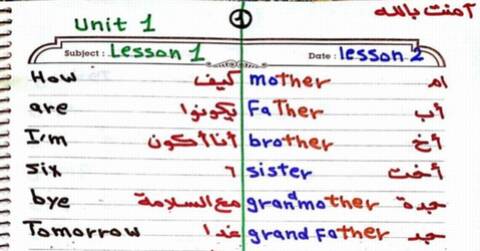 آمنت بالله
1
Unit 1
Subject : Lesson 1 Date : lesson 2
How كيف mother ام
are يكونوا FaTher أب
I'm أنا أكون brother أخ
six ٦ sister أخت
bye مع السلامة grandmother جدة
Tomorrow غدا grand Father جد